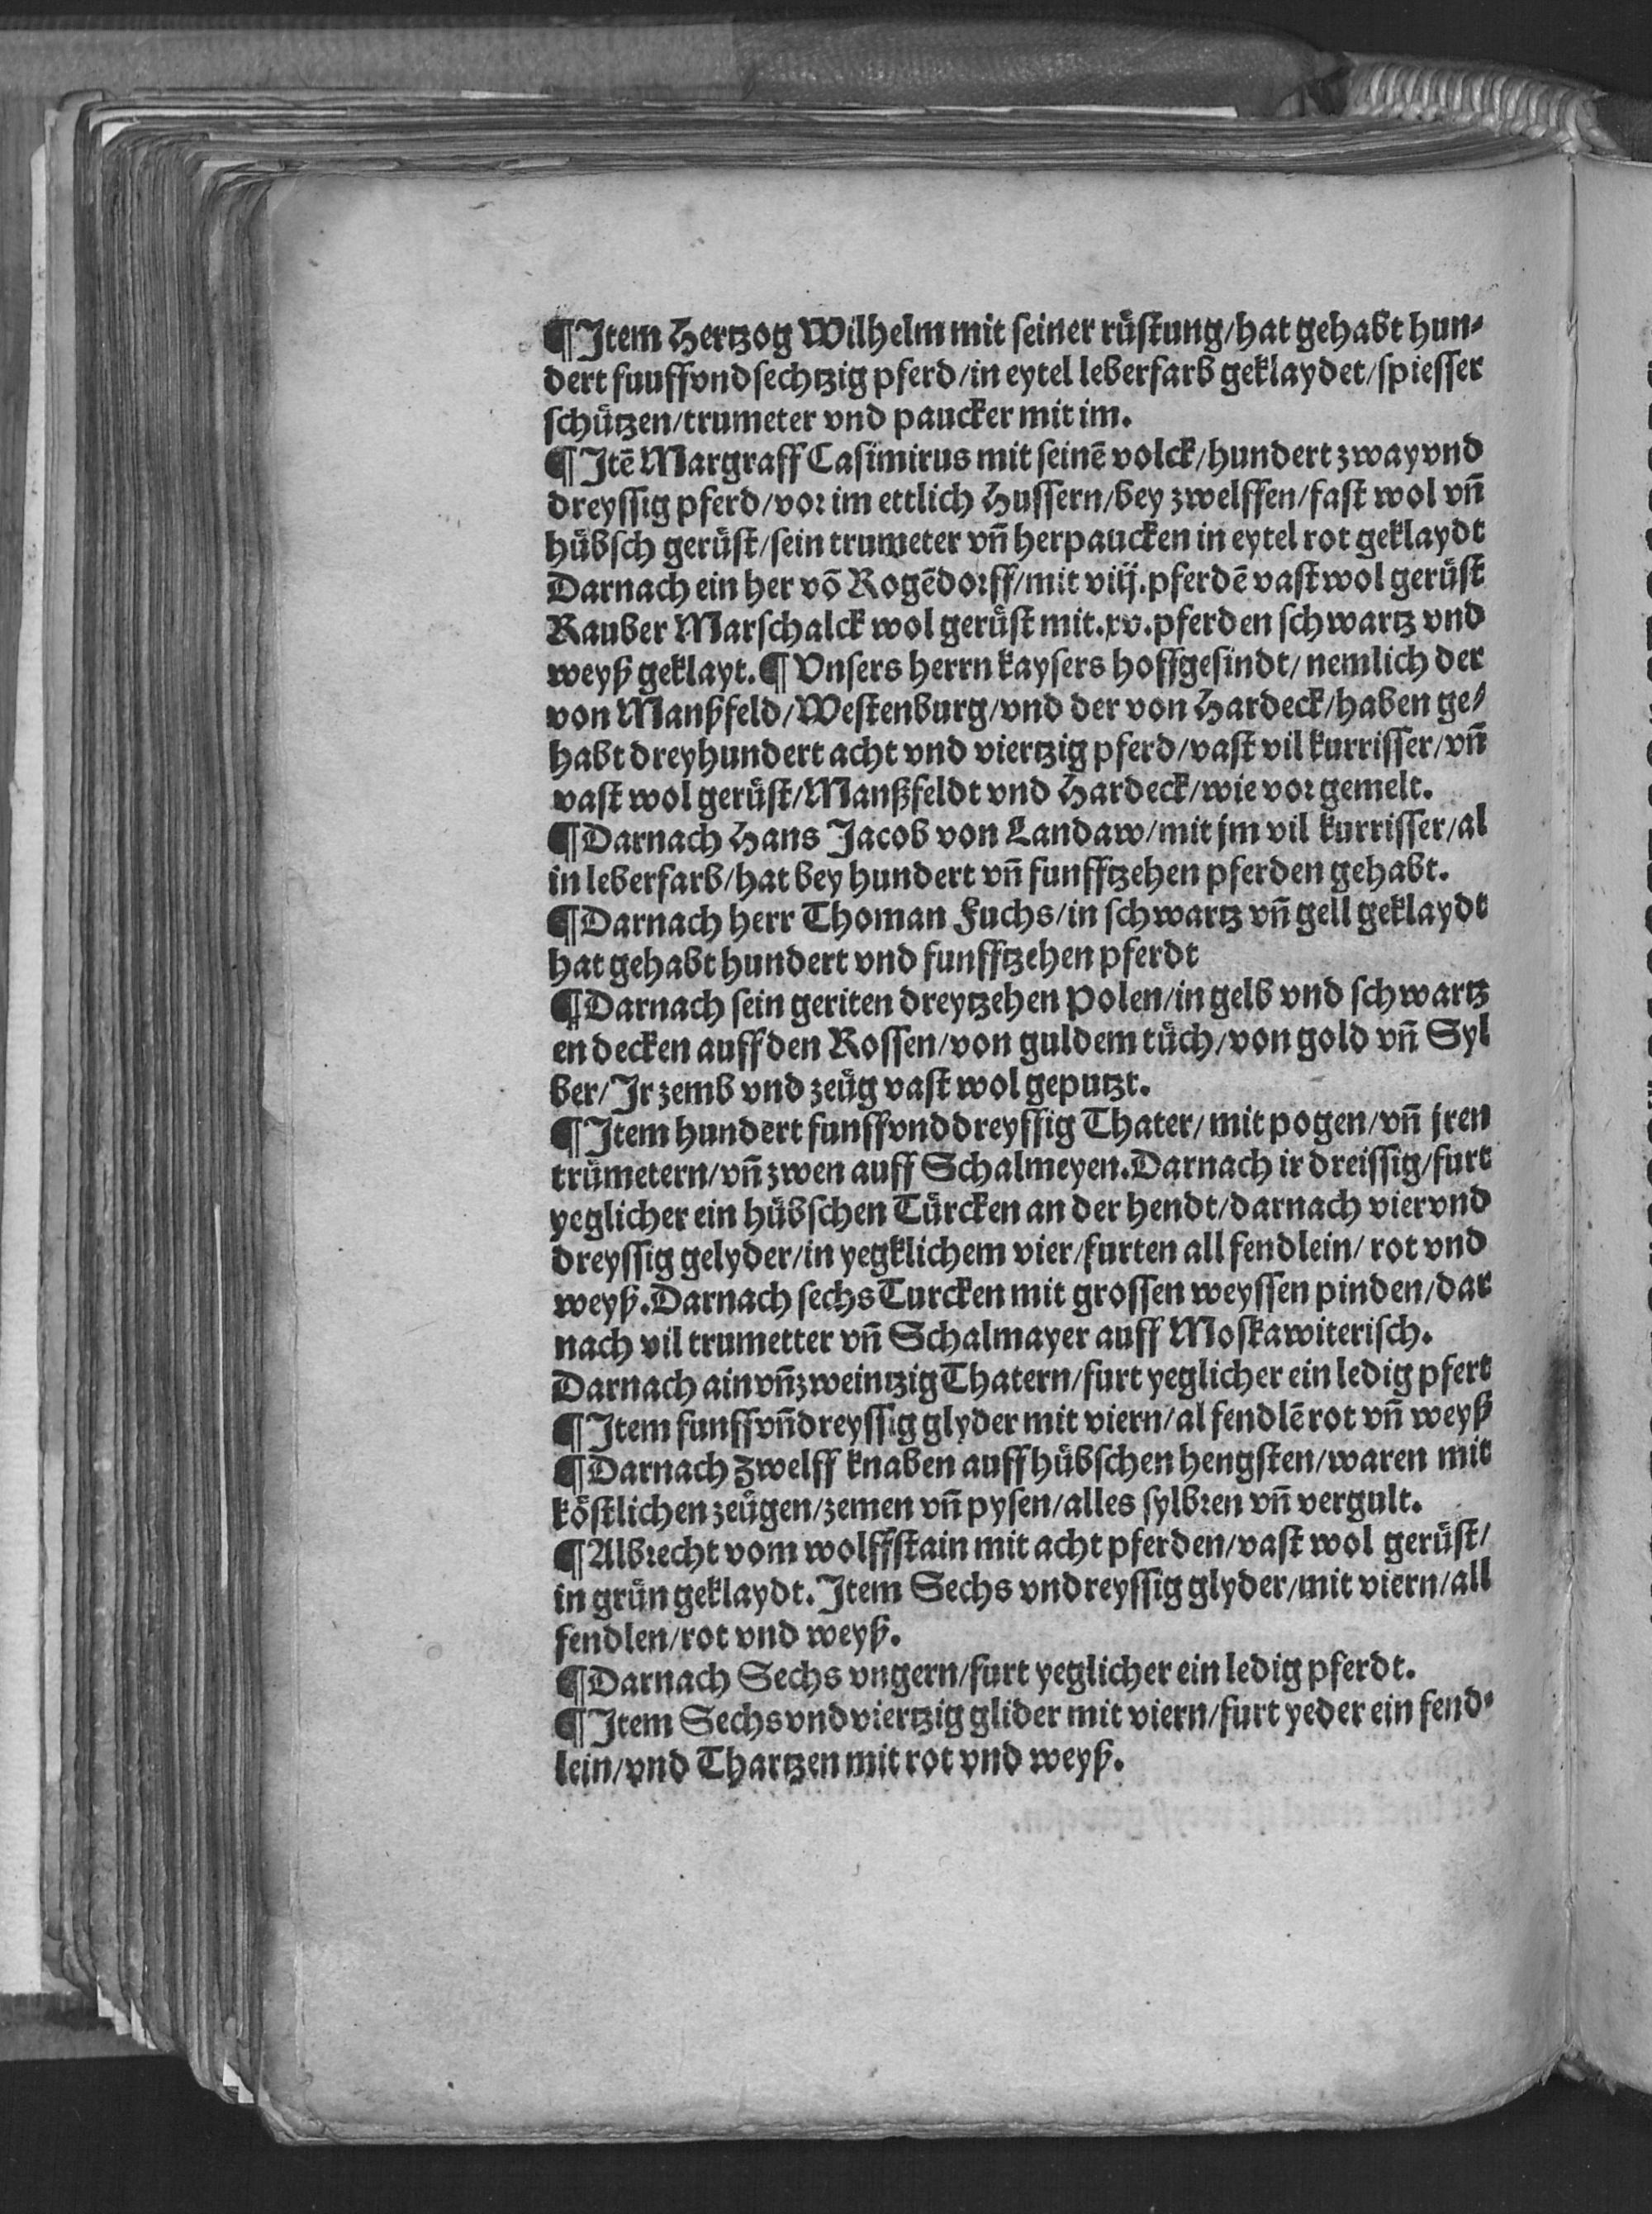 ¶ Item Hertzog Wilhelm mit seiner rüstung/hat gehabt hun⸗
dert fuuffvndsechtzig pferd/in eytel leberfarb geklaydet/spiesser
schützen/trumeter vnd paucker mit im.
¶ Itē Margraff Casimirus mit seinē volck/hundert zway vnd
dreyssig pferd/vor im ettlich Hussern/bey zwelffen/fast wol vn̄
hübsch gerüst/sein trumeter vn̄ herpaucken in eytel rot geklaydt
Darnach ein her vō Rogēdorff/mit viij.pferdē vast wol gerüst
Rauber Marschalck wol gerüst mit.xv.pferden schwartz vnd
weyß geklayt.¶ Vnsers herrn kaysers hoffgesindt/nemlich der
von Manßfeld/Westenburg/vnd der von Hardeck/haben ge⸗
habt dreyhundert acht vnd viertzig pferd/vast vil kurrisser/vn̄
vast wol gerüst/Manßfeldt vnd Hardeck/wie vor gemelt.
¶ Darnach Hans Jacob von Landaw/mit jm vil kurrisser/al
in leberfarb/hat bey hundert vn̄ funfftzehen pferden gehabt.
¶ Darnach herr Thoman Fuchs/in schwartz vn̄ gell geklaydt
hat gehabt hundert vnd funfftzehen pferdt
¶ Darnach sein geriten dreytzehen Polen/in gelb vnd schwartz
en decken auff den Rossen/von guldem tüch/von gold vn̄ Syl
ber/Ir zemb vnd zeüg vast wol geputzt.
¶ Item hundert funffvnddreyssig Thater/mit pogen/vn̄ jren
trümetern/vn̄ zwen auff Schalmeyen.Darnach ir dreissig/furt
yeglicher ein hübschen Türcken an der hendt/darnach viervnd
dreyssig gelyder/in yegklichem vier/furten all fendlein/rot vnd
weyß.Darnach sechs Turcken mit grossen weyssen pinden/dar
nach vil trumetter vn̄ Schalmayer auff Moskawiterisch.
Darnach ainvn̄zweintzig Thatern/furt yeglicher ein ledig pfert
¶ Item funffvn̄dreyssig glyder mit viern/al fendlē rot vn̄ weyß
¶ Darnach Zwelff knaben auff hübschen hengsten/waren mit
köstlichen zeügen/zemen vn̄ pysen/alles sylbren vn̄ vergult.
¶ Albrecht vom wolffstain mit acht pferden/vast wol gerüst/
in grün geklaydt.Item Sechs vndreyssig glyder/mit viern/all
fendlen/rot vnd weyß.
¶ Darnach Sechs vngern/furt yeglicher ein ledig pferdt.
¶ Item Sechs vnd viertzig glider mit viern/furt yeder ein fend⸗
lein/vnd Thartzen mit rot vnd weyß.